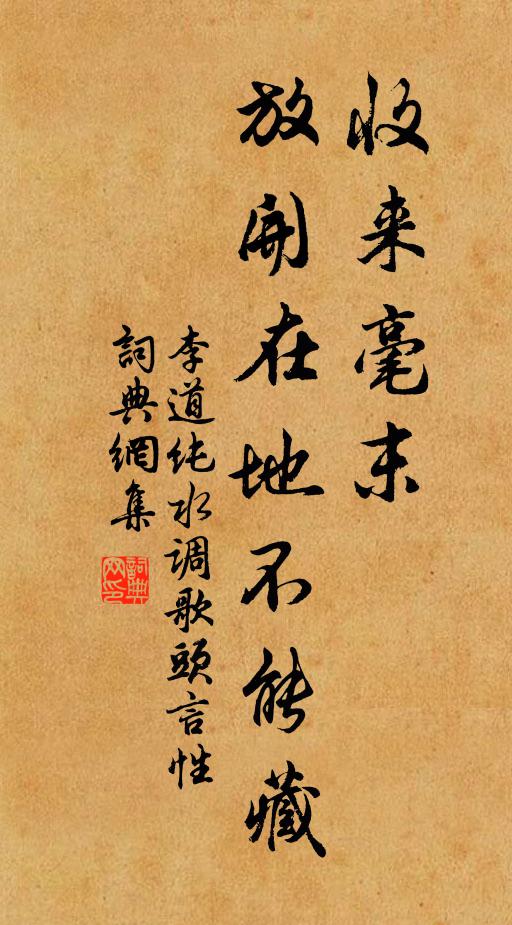 收来毫末
放開在地不能藏
李道纯水调歌頭言性
詞典網集
詞典网印